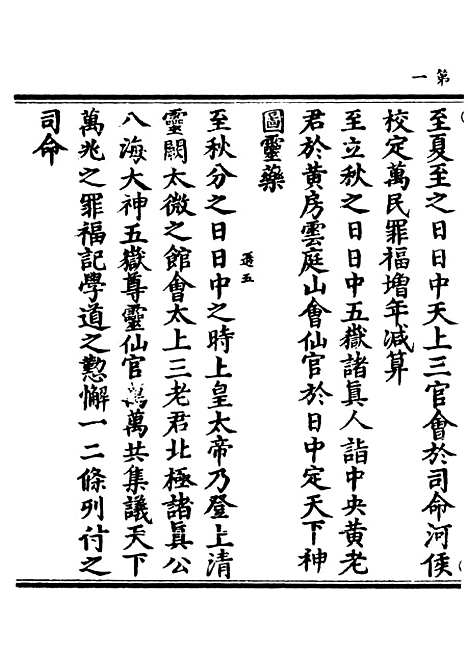 第一
至夏至之日日中天上三官會於司命河侯
校定萬民罪福增年减算
至立秋之日日中五嶽諸眞人詣中央黃老
君於黃房雲庭山會仙官於日中定天下神
圖靈藥
遜五
至秋分之日日中之時上皇太帝乃登上清
靈闕太微之館會太上三老君北極諸眞公
八海大神五嶽尊靈仙官萬萬共集議天下
萬兆之罪福記學道之懃懈一二條列付之
司命